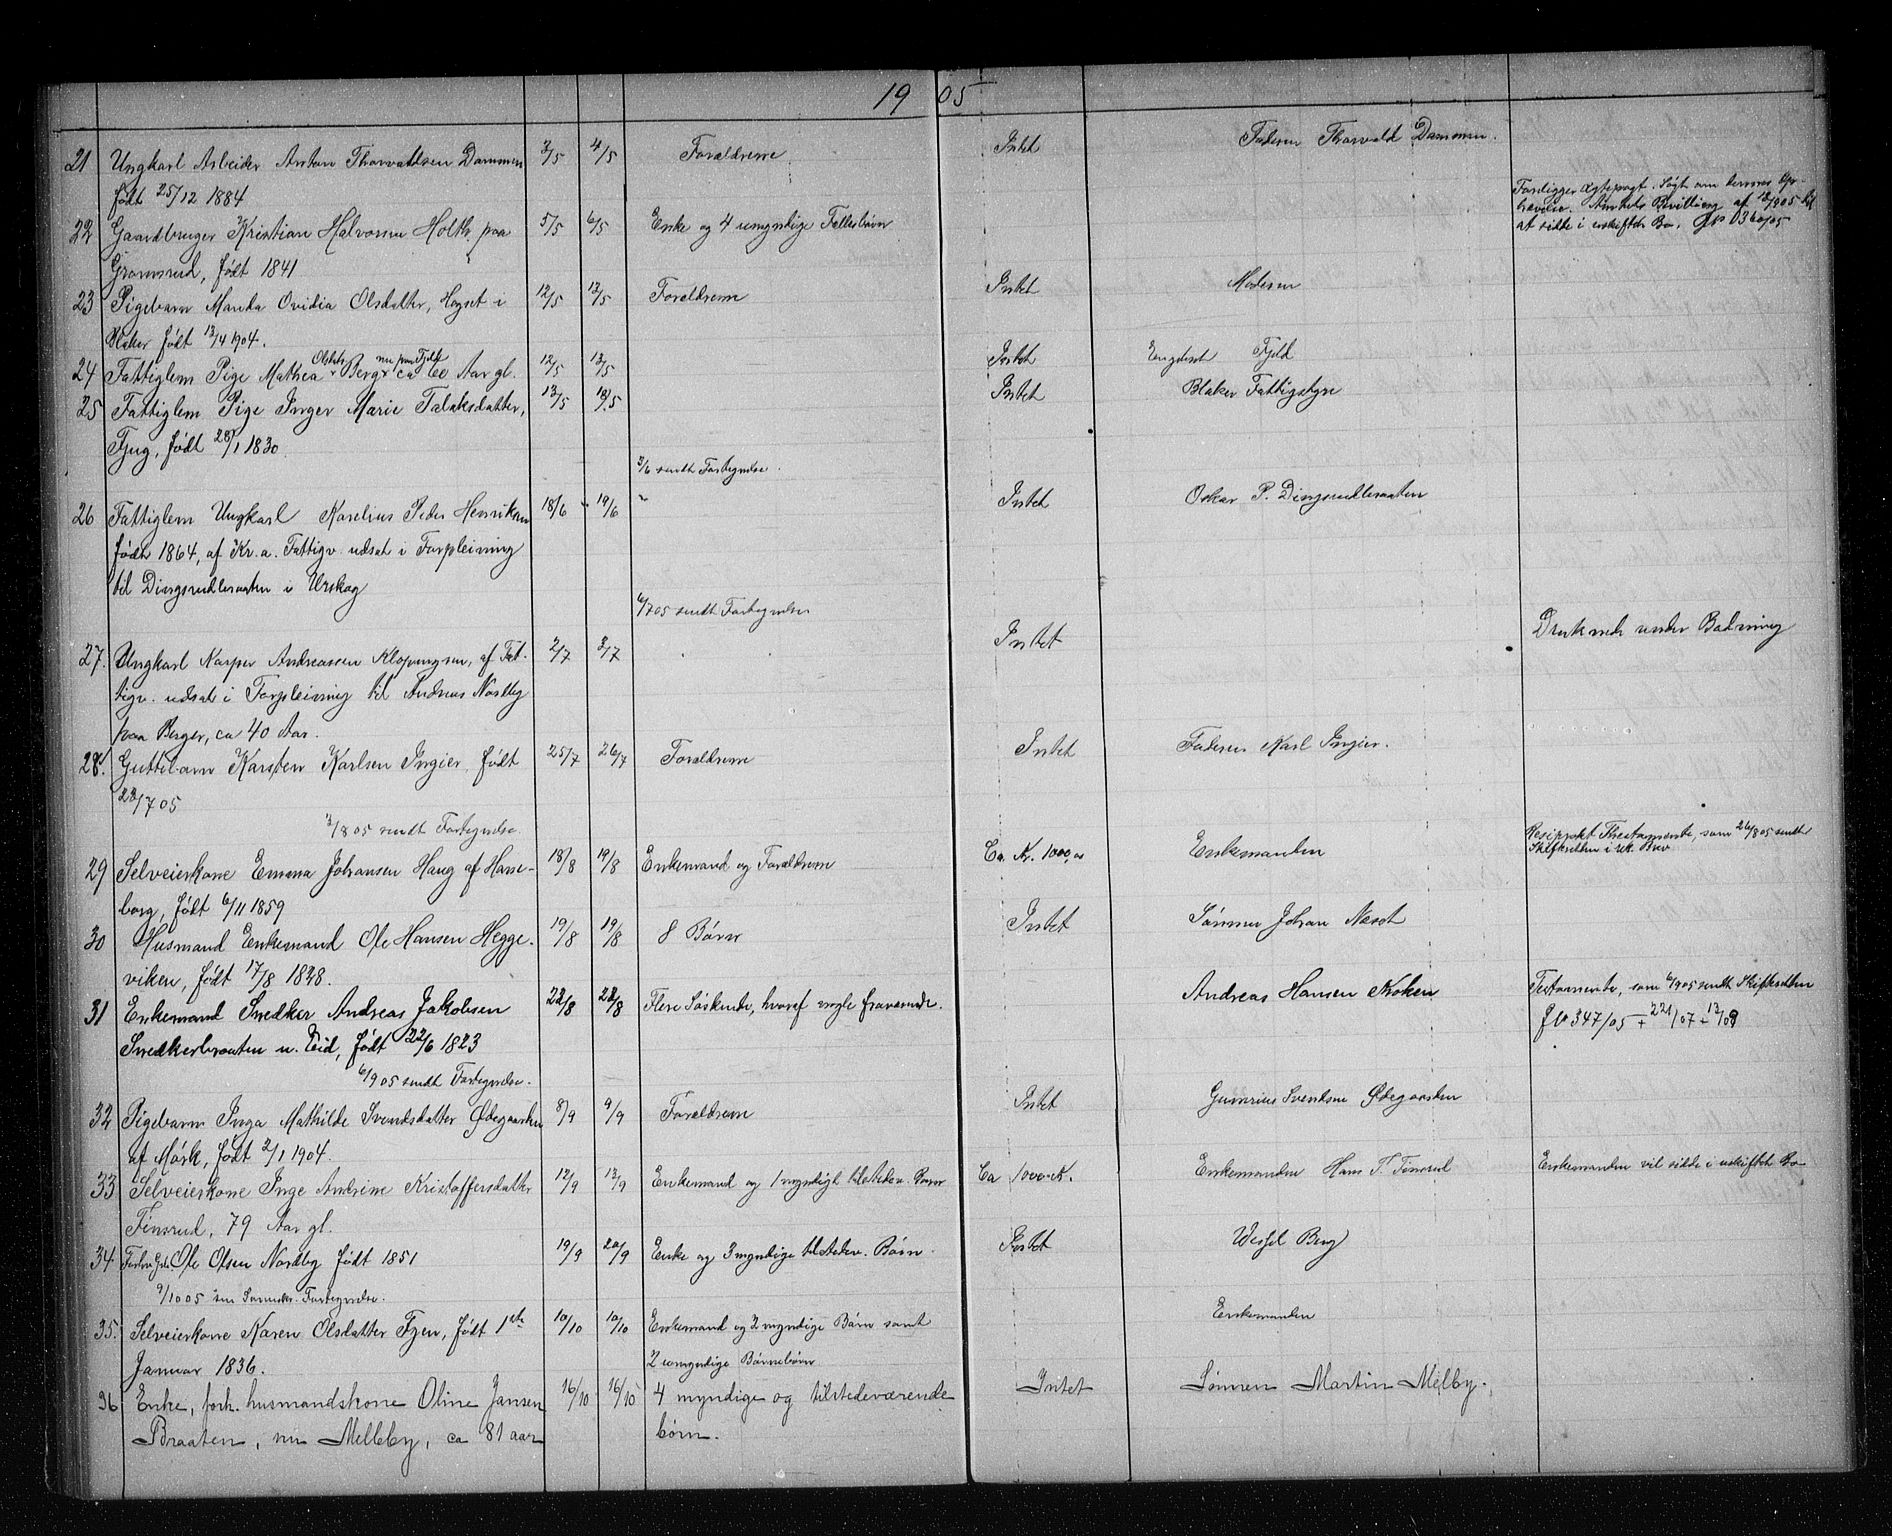 19 05
21 Ungkarl Arbeider Anton Thorvaldsen Dammen 3/5 4/5 Forældrene Intet Faderen Thorvald Dammen.
født 25/12 1884
22 Gaardbruger Kristian Halvorsen Holth paa 5/5 6/5 Enke og 4 umyndige Fællesbørn Foreligger Ægtepagt. Søgt om dennes Op-
hævelse. Amtets Bevilling af
at sidde i uskiftet Bo.
Gromsrud, født 1841
23 Pigebarn Manda Ovidia Olsdatter, Høgset i 12/5 13/5 Forældrene Intet Moderen
Blaker født 13/4 1904.
24 Fattiglem Pige Mathea Olsdtr Berg nu paa Fjeld ca 60 Aar gl. 12/5 13/5 Intet Engebret Fjeld
25 Fattiglem Pige Inger Marie Falaksdatter, 13/5 18/5 Intet Blaker Fattigstyre
Fjug, født 28/1 1830
3/6 sendt Fortegnelse.
26 Fattiglem Ungkarl Karelius Peder Henriksen 18/6 19/6 " Intet Oskar P. Dingsrudbraaten
født 1864, af Kr.a. Fattigv. udsat i Forpleining
til Dingsrudbraaten i Urskog
6/7 05 sendt Fortegnelse
27. Ungkarl Kasper Andreassen Klopungen, af Fat- 2/7 3/7 Intet Druknede under Badning
tigv. udsat i Forpleining til Andreas Nordby
paa Berger, ca 40 Aar.
28. Guttebarn Karsten Karlsen Ingier, født 25/7 26/7 Forældrene Intet Faderen Karl Ingier.
22/7 05
3/8 05 sendt Fortegnelse
29 Selveierkone Emma Johansen Haug af Hane- 18/8 19/8 Enkemand og Forældrene Ca. Kr. 1000,00 Enkemanden Resiprokt Thestamente, som 26/8 05 sendt
Skifteretten i rek. Brev.
borg, født 6/11 1859
30 Husmand Enkemand Ole Hansen Hegge- 19/8 19/8 8 Børn Intet Sønnen Johan Næset
viken, født 17/8 1828.
31 Enkemand Snedker Andreas Jakobsen 22/8 22/8 Flere Søskende, hvoraf nogle fraværende. Andreas Hansen Kroken Testamente, som 6/9 05 sendt Skifteretten
347/05 + 221/07
Snedkerbraaten u. Eid, født 22/6 1823
6/9 05 sendt Fortegnelse.
32 Pigebarn Inga Mathilde Svendsdatter Ødegaarden 8/9 9/9 Forældrene Intet Gunerius Svendsen Ødegaarden
af Mørk, født 2/1 1904.
33 Selveierkone Inge Andrine Kristoffersdatter 12/9 13/9 Enkemand og 1 myndigt tilstedev. Barn Ca 1000 K. Enkemanden Hans T. Finsrud Enkemanden vil sidde i uskiftet Bo
Finsrud, 79 Aar gl.
34 Ole Olsen Nordby født 1851 19/9 20/9 Enke og 3 myndige tilstedev. Børn. Intet Wessel Berg
9/10 05 Fortegnelse.
35. Selveierkone Karen Olsdatter Fjen, født 1ste 10/10 10/10 Enkemand og 2 myndige Børn samt Enkemanden
Januar 1836. 2 umyndige Børnebørn
36 Enke, forh. husmandskone Oline Jansen 16/10 16/10 4 myndige og tilstedeværende Intet Sønnen Martin Melby.
Braaten, nu Melleby, ca 81 aar børn.